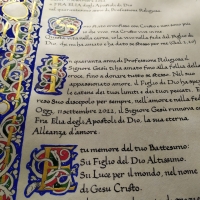 FRA ELIA degli Apostoli di Dio
di Professione Religiosa
crocifisso con Cristo e non sono più
io che vivo, ma Cristo vive in me.
Questa vita nella carne, io la vivo nella fede del Figlio di
Dio che mi ha amato e ha dato se stesso per me
anni di Professione Religiosa il
Signore Gesù ti ha amato fino alla follia della
croce, fino a donare tutto se stesso. Nel suo
appassionato amore, il Figlio di Dio ha spezzato
le catene dei tuoi limiti e dei tuoi peccati. E
reso Suo discepolo per sempre, nell'amore e nella fede.
Oggi, 11 settembre 2022, il Signore Gesù rinnova con
Fra Elia degli Apostoli di Dio, la sua eterna
Alleanza d'amore.
in memoria del tuo Battesimo:
Su Figlio del Dio Altissimo,
Su Luce per il mondo, nel nome
di Gesù Cristo.